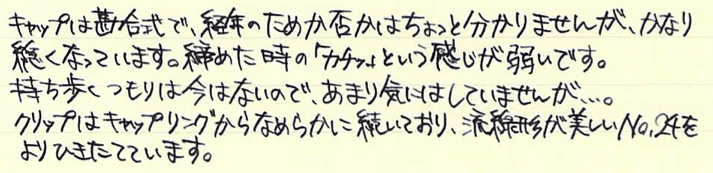 キャップは勘合式で、経年のためか否かはちょっと分かりませんが、かなり
緩くなっています。締めた時の「カチッ」という感じが弱いです。
持ち歩くつもりは今はないので、あまり気にはしていませんが…。
クリップはキャップリングからなめらかに続いており、流線形が美しいNo.24を
よりひきたてています。